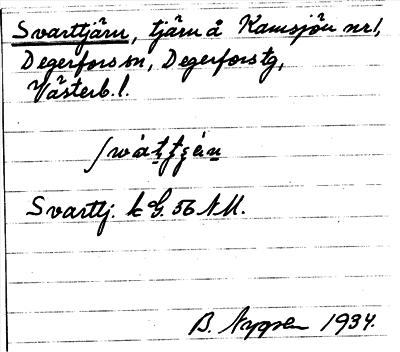 Svarttjärn, tjärn å Kamsjön nr 1,
Degerfors sn, Degerfors tg,
Västerb. l.
Svarttj. k G. 56 NM.
B. Nygren 1934.